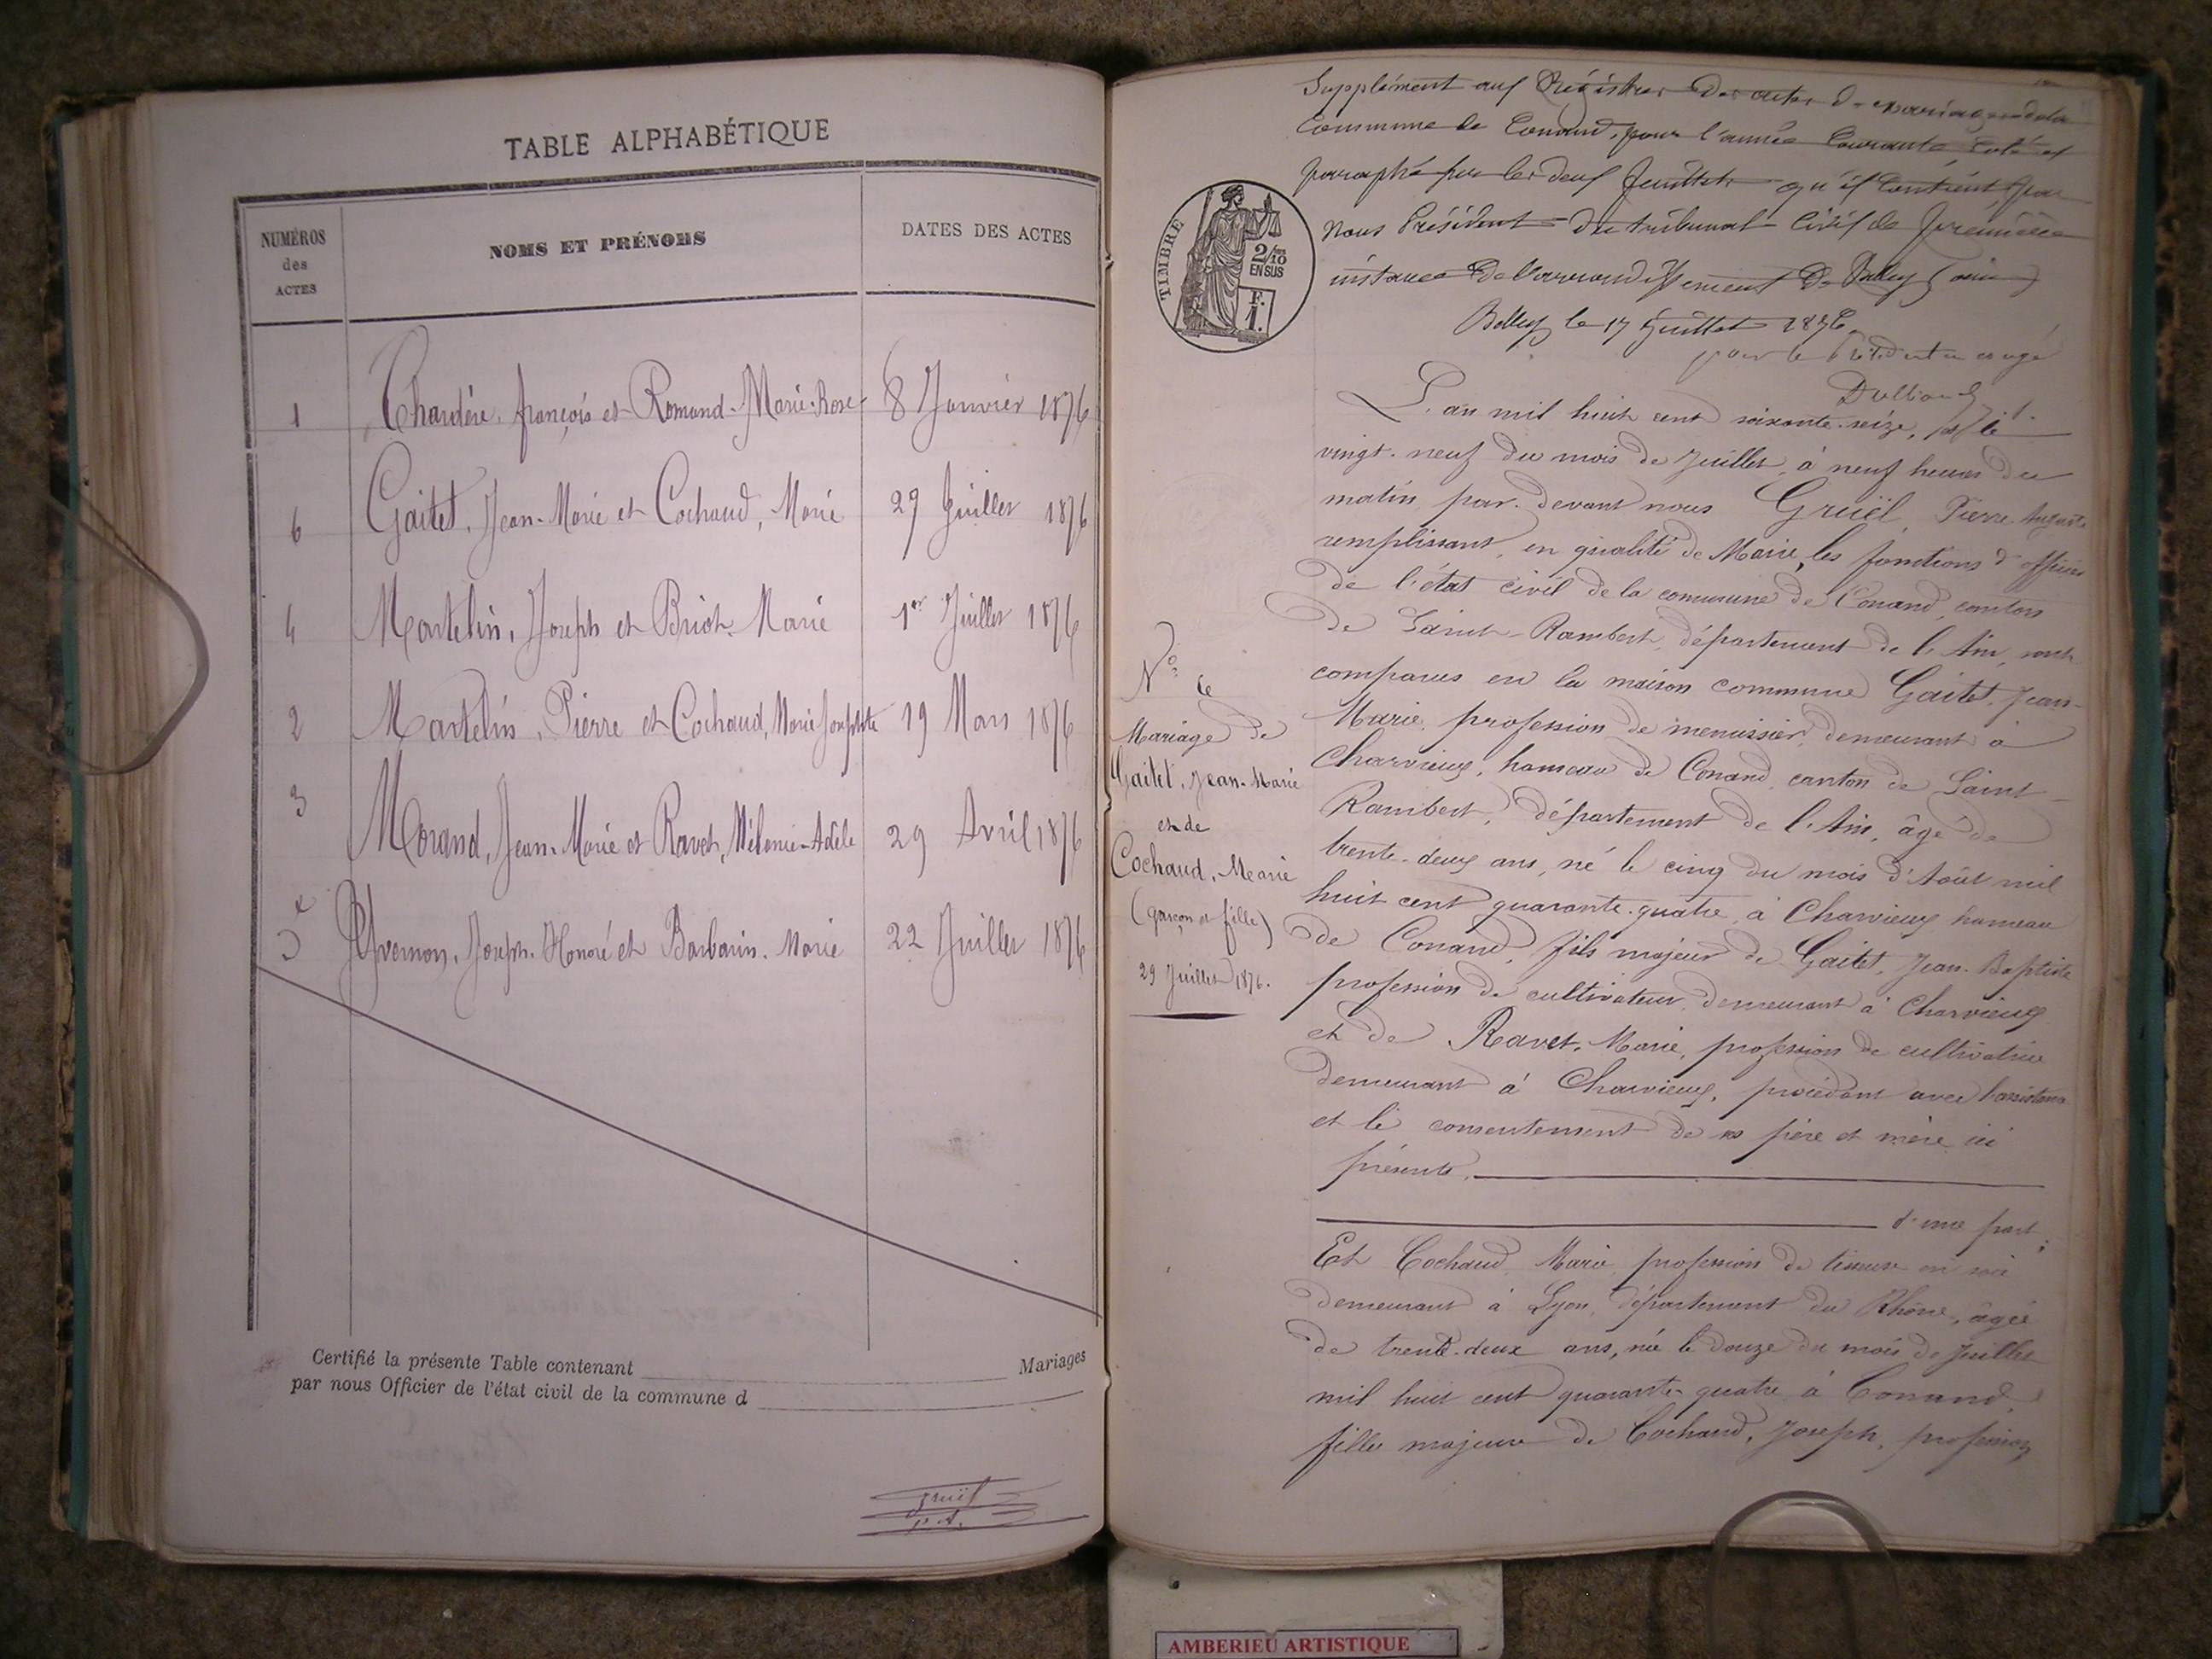 TABLE ALPHABÉTIQUE
NUMÉROS des ACTES
NOMS ET PRÉNOMS
DATES DES ACTES
1 Chardère, françois et Romand Marie-Rose 8 Janvier 1876
6 Gaitet, Jean-Marie et Cochaud, Marie 29 Juillet 1876
4 Martelin, Joseph et Briot Marie 1er Juillet 1876
2 Martelin, Pierre et Cochaud, Marie Josephte 19 Mars 1876
3 Morand, Jean-Marie et Ravet, Mélanie-Adèle 29 Avril 1876
5 Yvernon, Joseph-Honoré et Barbarin, Marie 22 Juillet 1876
Certifié la présente Table contenant Mariages
par nous Officier de l'état civil de la commune d
Gruël
P. A.
Supplément aux Régistres des actes de mariages de la
Commune de Conand, pour l'année Courante, coté et
paraphé sur les deux feuillets qu'il contient, par
nous Président du tribunal Civil de première
instance de l'arrondissement de Belley (ain)
Belley le 17 Juillet 1876
pour le Président en congé
TIMBRE
2/10 EN SUS
F. 1.
L'an mil huit cent soixante-seize, et le
vingt-neuf du mois de Juillet, à neuf heures du
matin, par-devant nous Gruël, Pierre Auguste
remplissant, en qualité de Maire, les fonctions d'officier
de l'état civil de la commune de Conand, canton
de Saint-Rambert, département de l'Ain, sont
comparus en la maison commune Gaitet, Jean-
Marie, profession de menuisier, demeurant à
Charvieux, hameau de Conand, canton de Saint-
Rambert, département de l'Ain, âgé de
trente-deux ans, né le cinq du mois d'Août mil
huit cent quarante-quatre, à Charvieux hameau
de Conand, fils majeur de Gaitet, Jean-Baptiste
profession de cultivateur, demeurant à Charvieux
et de Ravet, Marie, profession de cultivatrice
demeurant à Charvieux, procédant avec l'assistance
et le consentement de ses père et mère ici
présents,
d'une part;
Et Cochaud Marie, profession de tisseuse en soie
demeurant à Lyon, département du Rhône, âgée
de trente-deux ans, née le douze du mois de Juillet
mil huit cent quarante-quatre à Conand,
fille majeure de Cochaud, Joseph, profession
N° 6
Mariage de
Gaitet, Jean-Marie
et de
Cochaud, Marie
(garçon et fille)
29 Juillet 1876.
AMBERIEU ARTISTIQUE